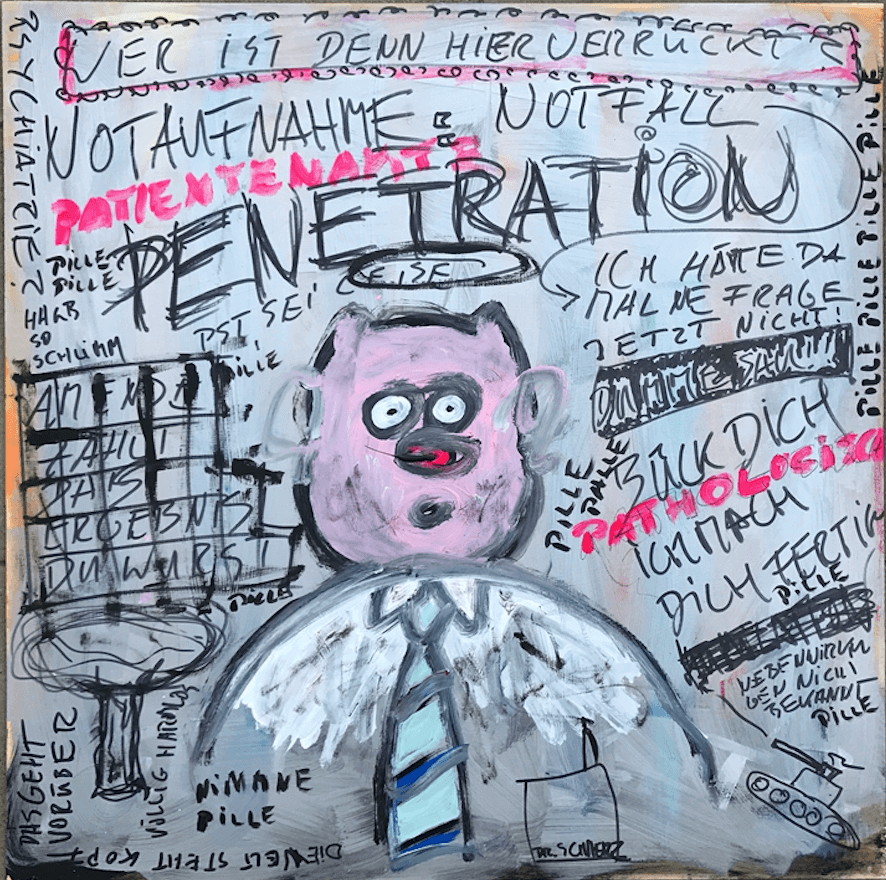 WER IST DENN HIER VERRÜCKT?
PSYCHIATRIE?
NOTAUFNAHME
NOTFALL
PATIENTENAKTE
PENETRATION
PILLE
PILLE
HALB
SO
SCHLIMM
PST, SEI
LEISE
PILLE
ICH HÄTTE DA
MAL NE FRAGE
JETZT NICHT!
PILLE PILLE PILLE PILLE PILLE
DUMME SAU!!!
AM ENDE
ZÄHLT
DAS
ERGEBNIS
DU WURST!
PILLE
BÜCK DICH
PATHOLOGISCH
ICH MACH
DICH FERTIG
PILLE
PILLE
PILLE
NEBENWIRKUN
GEN NICHT
BEKANNT
PILLE
DAS GEHT
VORÜBER
VÖLLIG HARMLOS
NIMM NE
PILLE
DIE WELT STEHT KOPF
DR. SCHMERZ